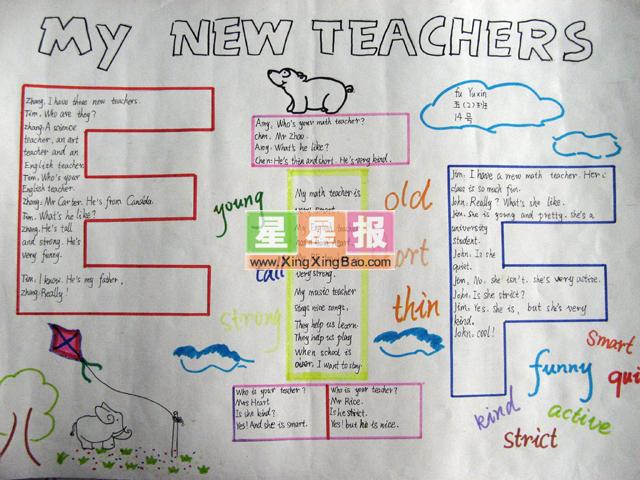 MY NEW TEACHERS
Zhang: I have three new teachers.
Tim: Who are they?
Zhang: A science
teacher, an art
teacher and an
English teacher.
Tim: Who's your
English teacher.
Zhang: Mr Carter. He's from Canada.
Tim: What's he like?
Zhang: He's tall
and strong. He's
very funny.
Tim: I know. He's my father.
Zhang: Really!
Amy: Who's your math teacher?
Chen: Mr Zhao.
Amy: What's he like?
Chen: He's thin and short. He's very kind.
Fu Yuxin
五(2)班
14号
young
tall
strong
My math teacher is
very strong.
My music teacher
sings nice songs,
They help us learn.
They help us play
When school is
over, I want to stay
星星报
www.XingXingBao.com
old
ort
thin
Jim: I have a new math teacher. Her
class is so much fun.
John: Really? What's she like.
Jim: she is young and pretty. she's a
university
student.
John: Is she
quiet.
Jim: No, She isn't. she's very active.
John: Is she strict?
Jim: Yes. she is, but she's very
kind.
John: cool!
Who is your teacher?
Mrs Heart
Is she kind?
Yes! And she is smart.
Who is your teacher?
Mr Rice.
Is he strict.
Yes! but he is nice.
smart
funny
qui
kind
active
strict